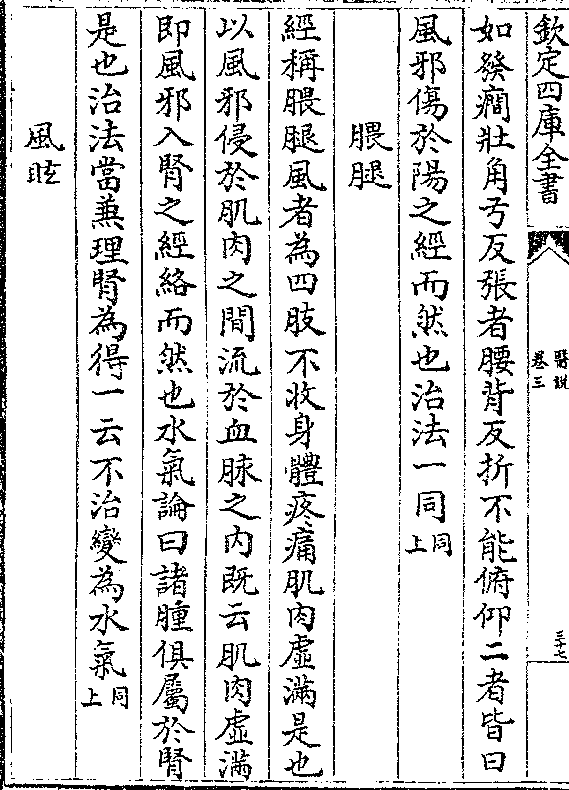 欽定四庫全書
醫說
卷三
三十七
如發癎壯角弓反張者腰背反折不能俯仰二者皆曰
風邪傷於陽之經而然也治法一同同上
腲腿
經稱腲腿風者為四肢不收身體疼痛肌肉虛滿是也
以風邪侵於肌肉之間流於血脉之内既云肌肉虛滿
即風邪入腎之經絡而然也水氣論曰諸腫俱屬於腎
是也治法當兼理腎為得一云不治變為水氣同上
風眩